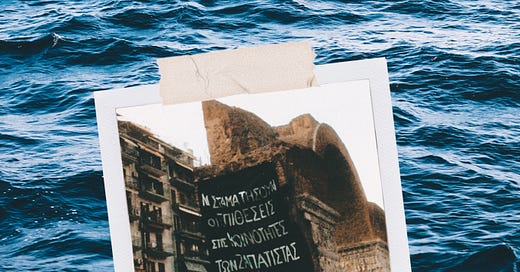 ΝΑ ΣΤΑΜΑΤΗΣΟΥΝ
ΟΙ ΕΠΙΘΕΣΕΙΣ
ΣΤΙΣ ΚΟΙΝΟΤΗΤΕΣ
ΤΩΝ ΖΑΠΑΤΙΣΤΑΣ